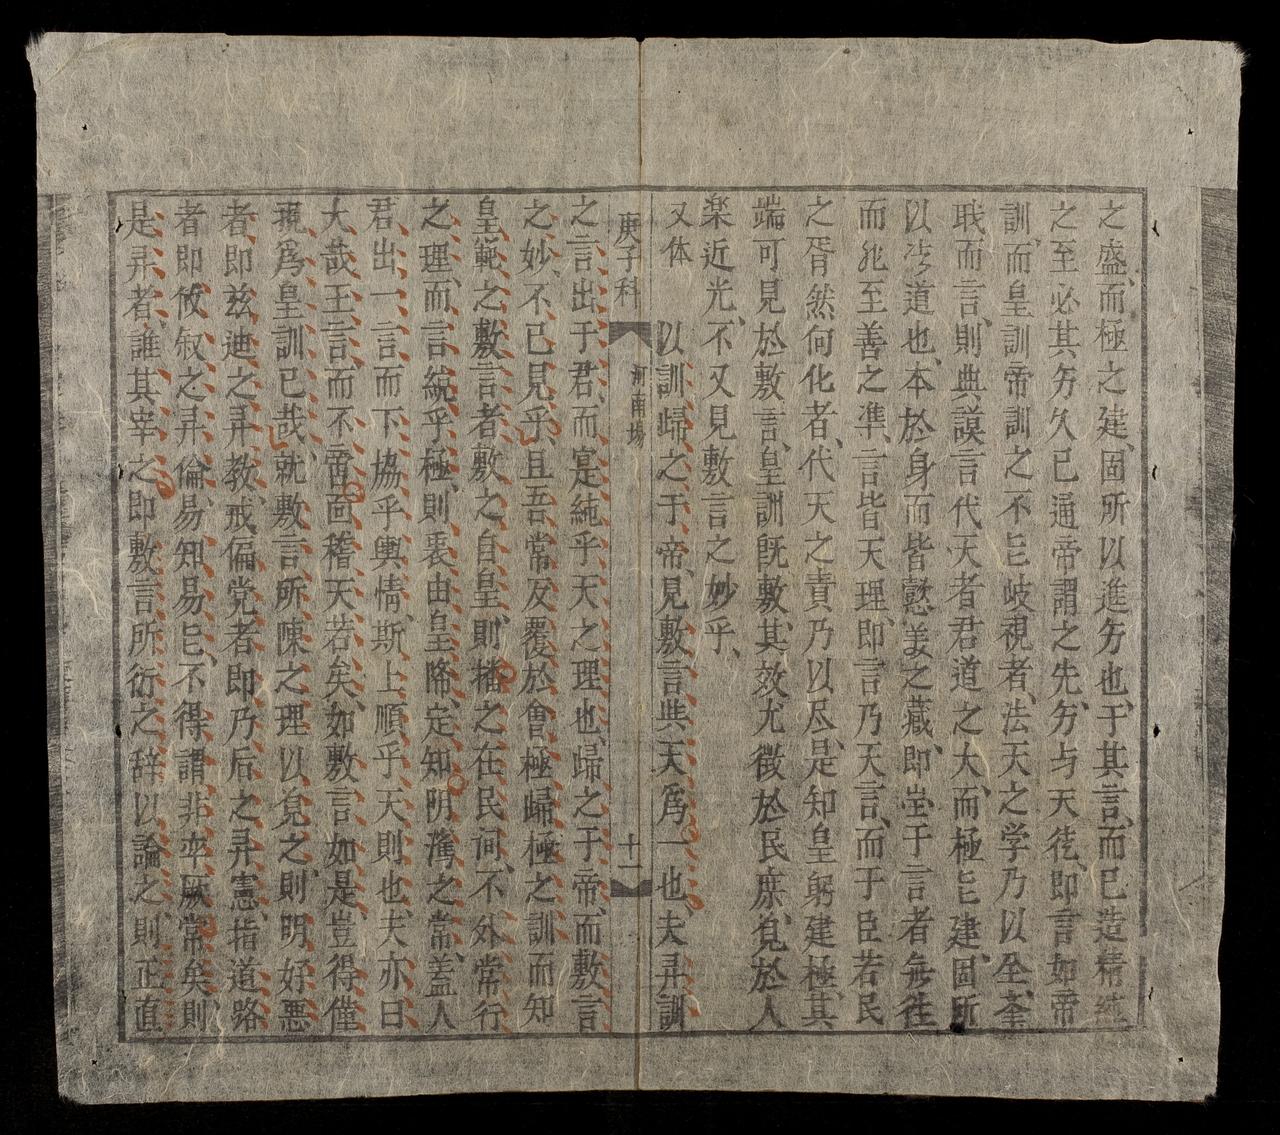 之盛、而極之建、固所以進夯也、于其言、而已造精純
之至必其夯久已通帝謂之先、夯与天徒、即言如帝
訓、而皇訓帝訓之不岐視者、法天之学乃以全、荃
戝而言、則典謨言代天者君道之大、而極㠯建、固所
以道也、本於身而皆懿姜之藏、即坣于言者無徃
而非至善之凖、言皆天理、即言乃天言、而于臣若民
之胥然何化者、代天之責乃以尽、是知皇躬建極、其
端可見於敷言、皇訓旣敷、其效尤徴於民庶、覓於人
楽近光、不又見敷言之妙乎、
又体　以訓歸之于帝、見敷言與天爲一也、夫昇訓
庚子科　河南場　十一
之言出于君、而寔純乎天之理也、歸之于帝、而敷言
之妙、不已見乎、且吾常反覆於會極歸極之訓而知
皇範之敷言者、敷之自皇、則播之在民间、不外常行
之理、而言統乎極、則衷由皇降、定知明薄之常、盖人
君出一言而下協乎輿情、斯上順乎天則也、夫亦曰
大哉王言、而不啻面稽天若矣、如敷言如是、豈得僅
現爲皇訓已哉、就敷言所陳之理以覓之、則明好悪
者即兹迪之昇教、戒偏党者即乃后之昇憲、指道路
者即攸叙之昇倫、易知易㠯、不得謂非率厥常矣、則
是昇者、誰其宰之即敷言所衍之辞以論之則正直